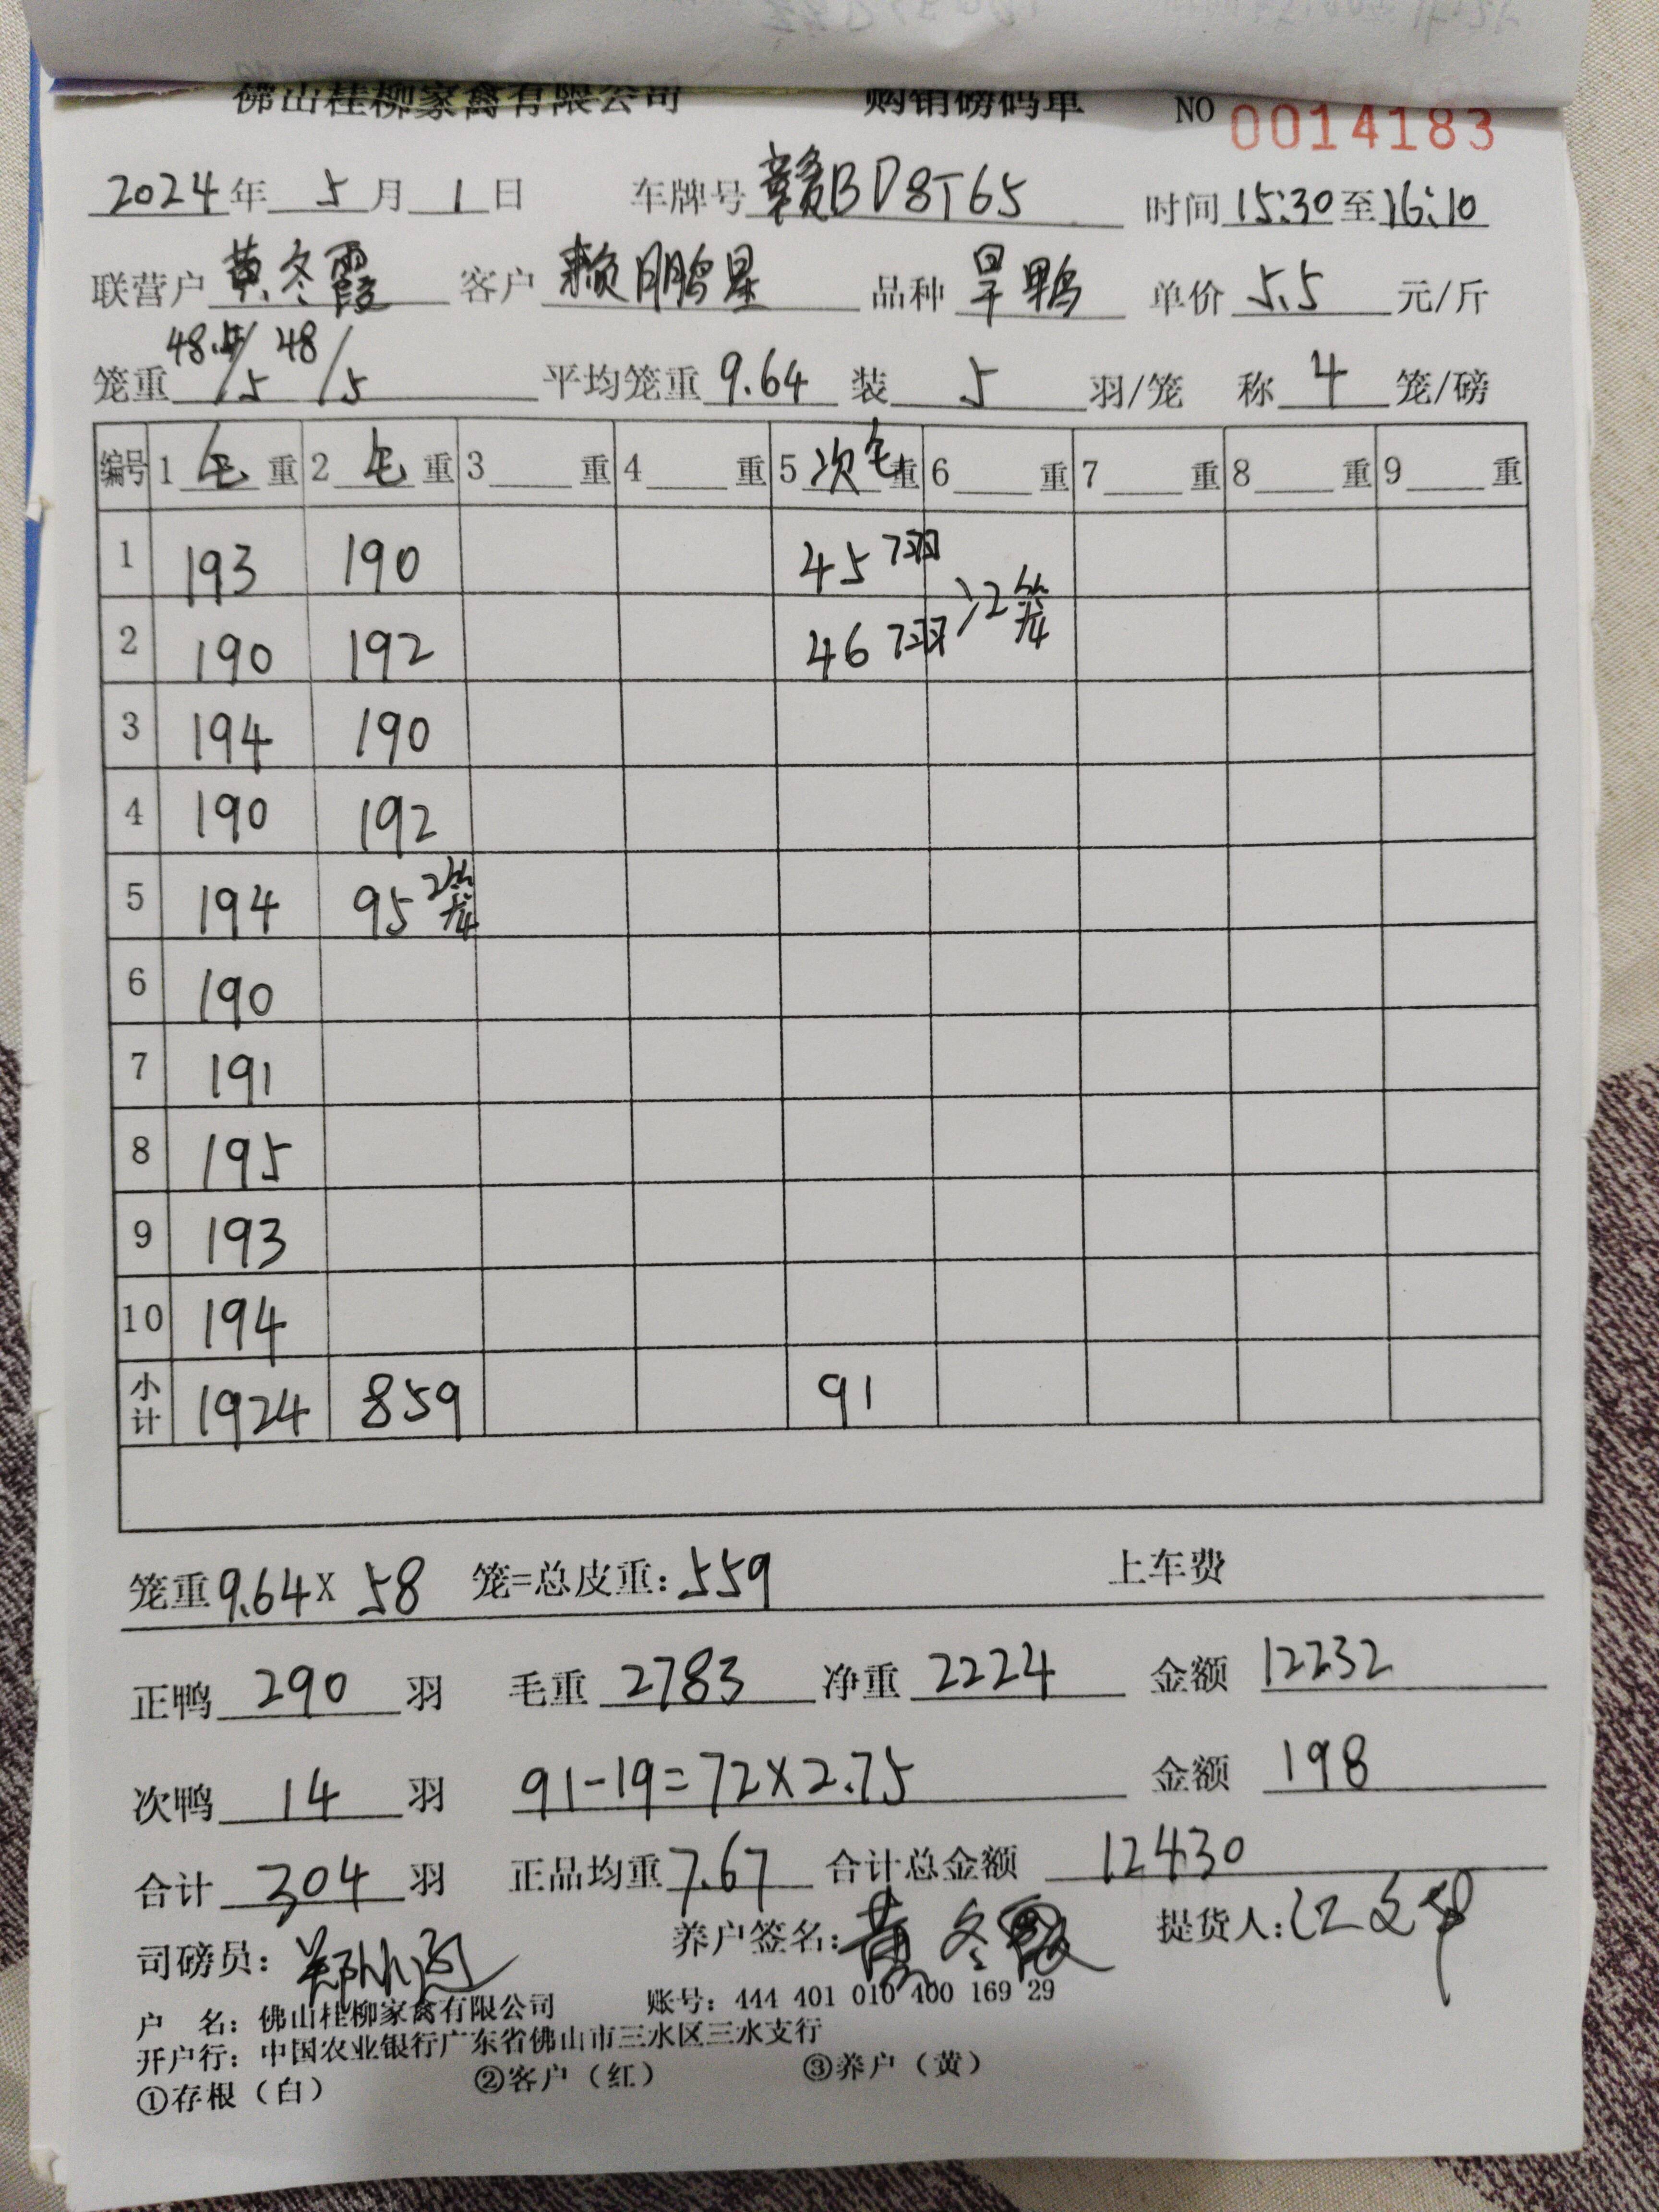 佛山桂柳家禽有限公司 购销磅码单 NO 0014183
2024年 5月 1日 车牌号 赣BD8T65 时间 15:30至16:10
联营户 黄冬霞 客户 赖鹏星 品种 旱鸭 单价 5.5 元/斤
笼重 48.4/5 48/5 平均笼重 9.64 装 5 羽/笼 称 4 笼/磅
编号 1 毛 重 2 毛 重 3 重 4 重 5 次毛 重 6 重 7 重 8 重 9 重
1 193 190 45 7羽
2 190 192 46 7羽 }2笼
3 194 190
4 190 192
5 194 95 2笼
6 190
7 191
8 195
9 193
10 194
小计 1924 859 91
笼重 9.64 X 58 笼=总皮重: 559 上车费
正鸭 290 羽 毛重 2783 净重 2224 金额 12232
次鸭 14 羽 91-19=72×2.75 金额 198
合计 304 羽 正品均重 7.67 合计总金额 12430
司磅员: 养户签名: 黄冬霞 提货人: 江文
户 名: 佛山桂柳家禽有限公司 账号: 444 401 010 400 169 29
开户行: 中国农业银行广东省佛山市三水区三水支行
①存根（白） ②客户（红） ③养户（黄）